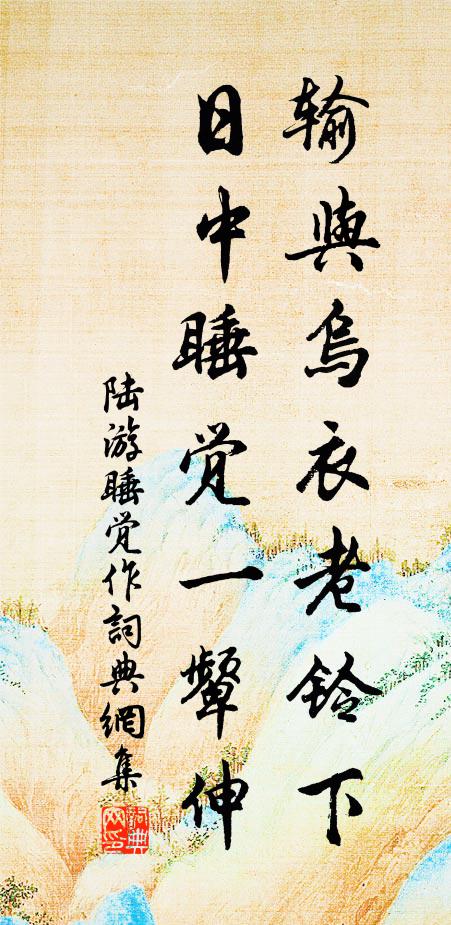 输與烏衣老鈴下
日中睡觉一顰伸
陆游睡觉作詞典網集
詞典网印